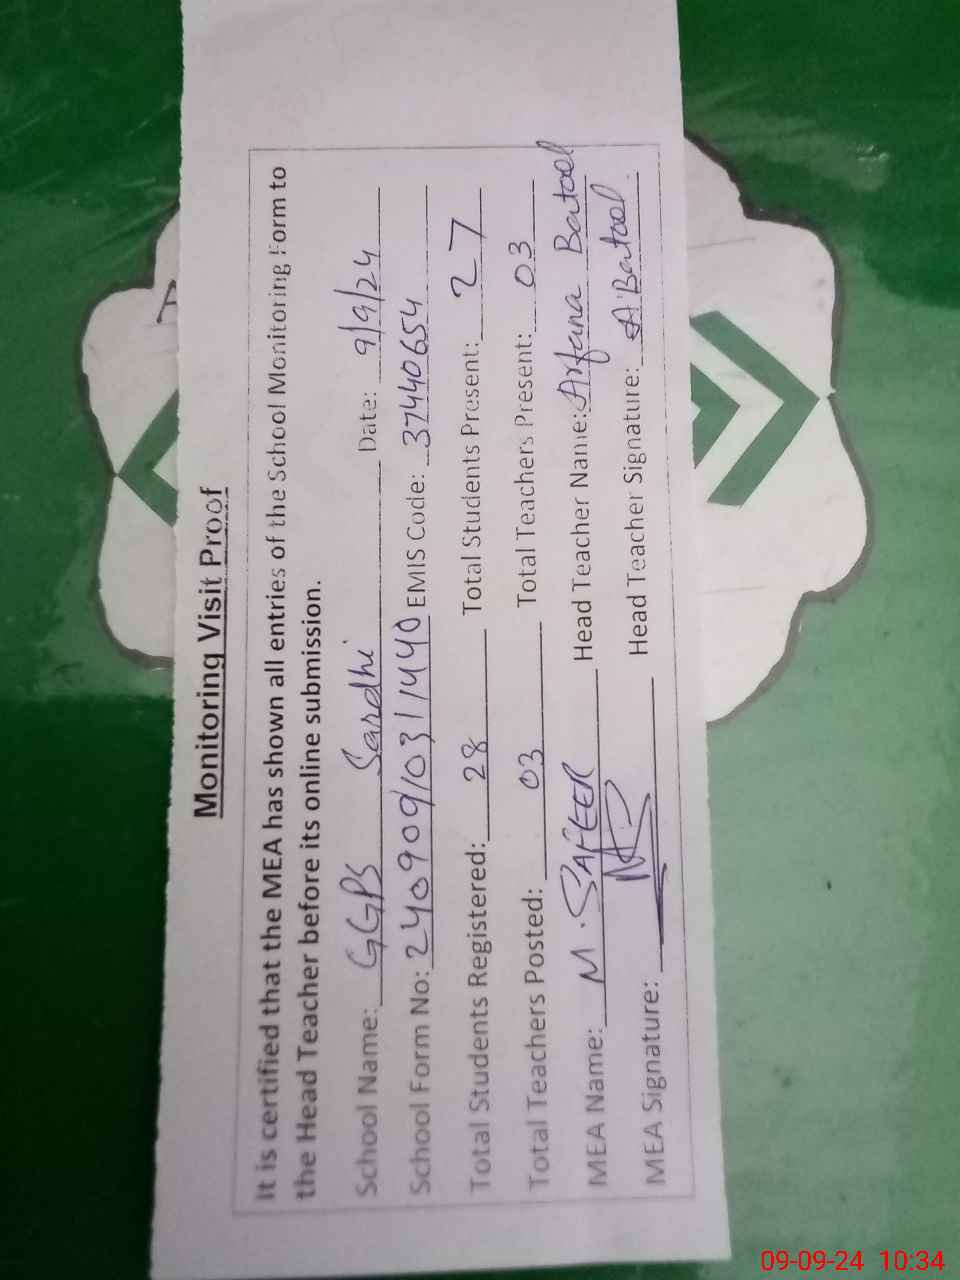 Monitoring Visit Proof
It is certified that the MEA has shown all entries of the School Monitoring Form to
the Head Teacher before its online submission.
School Name: GGPS Sardhi Date: 9/9/24
School Form No: 240909/031440 EMIS Code: 37440654
Total Students Registered: 28 Total Students Present: 27
Total Teachers Posted: 03 Total Teachers Present: 03
MEA Name: M. SAFEER Head Teacher Name: Arfana Batool
MEA Signature: Head Teacher Signature: A Batool
09-09-24 10:34